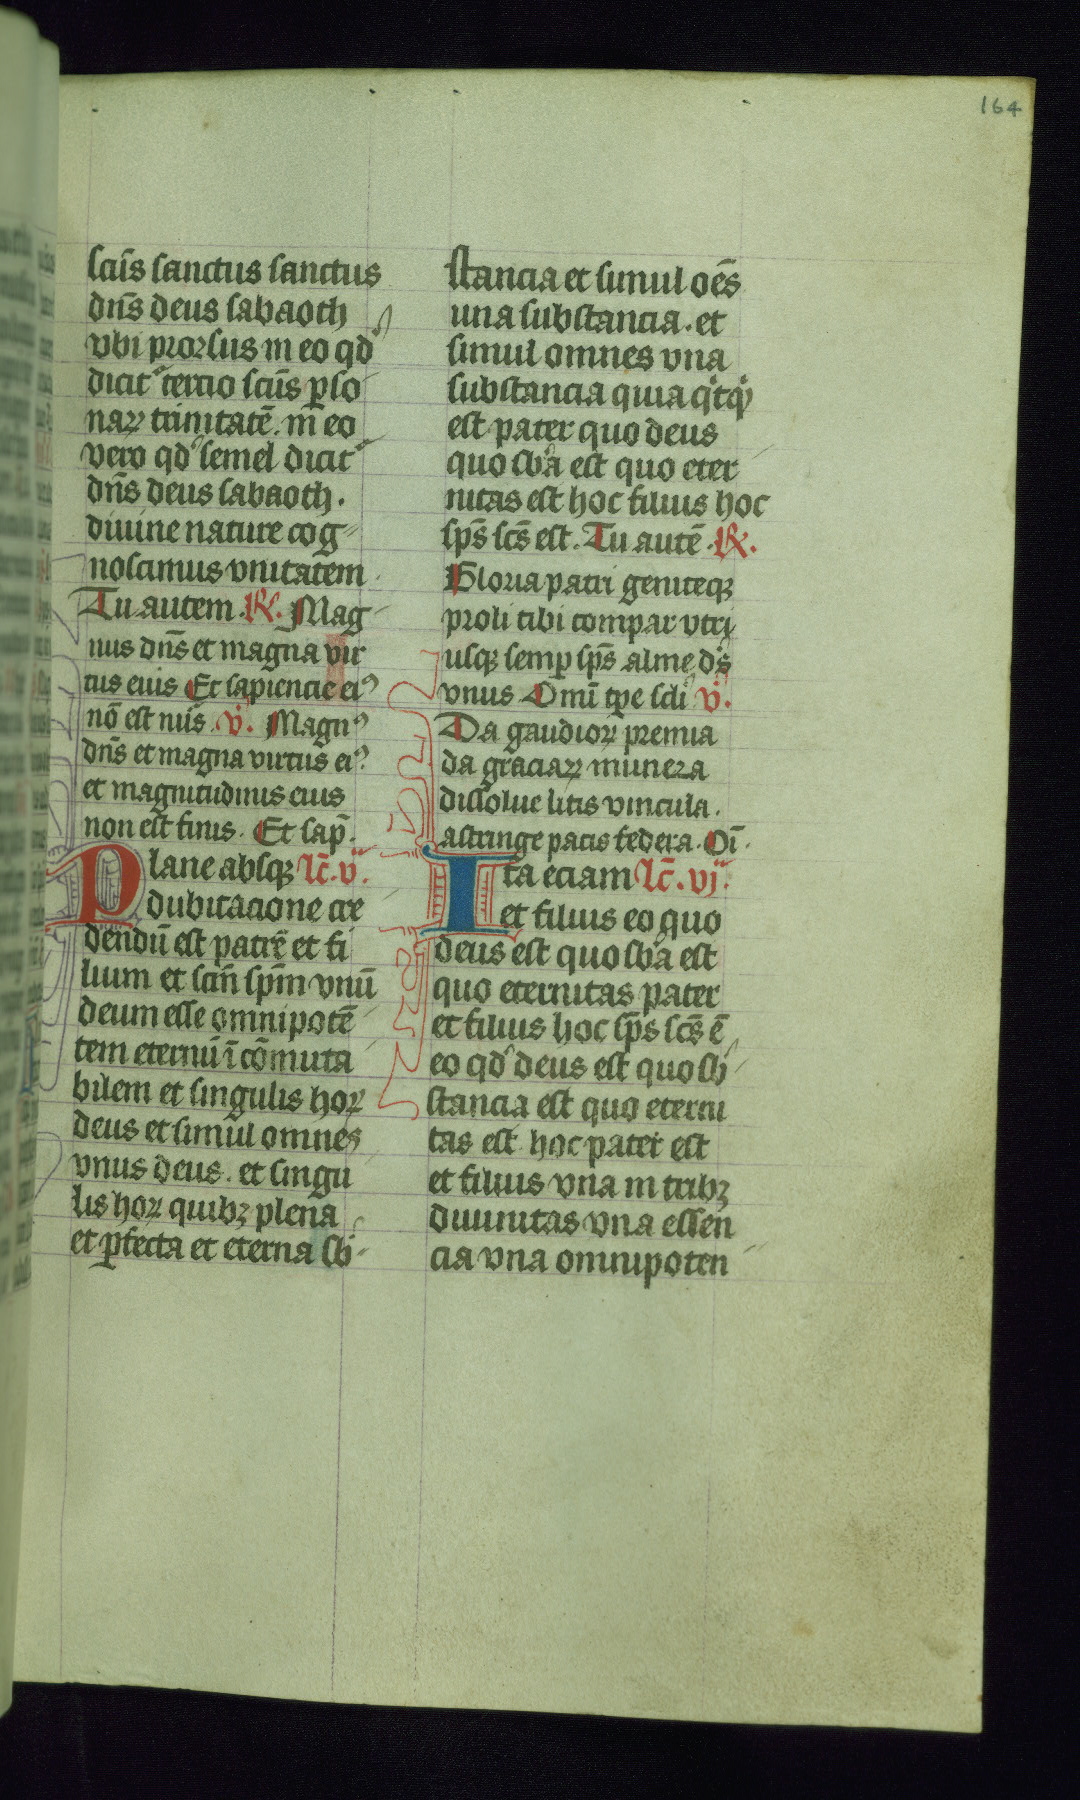 164
scūs sanctus sanctus
dn̄s deus sabaoth
vbi prorsus in eo qd
dicit᷑ tercio scūs p̱so
naꝝ trinitatē. in eo
vero qd semel dicit᷑
dn̄s deus sabaoth.
diuine nature cog
noscimus vnitatem
Tu autem. ℟. Mag
nus dn̄s et magna vir
tus eius Et sapiencie eiꝰ
nō est nūs. v̇. Magnꝰ
dn̄s et magna virtus eiꝰ
et magnitudinis eius
non est finis. Et sap̄.
Plane absqꝫ lc̄. v.
dubitacione cre
dendū est patrē et fi
lium et scm̄ spm̄ vnū
deum esse omnipotē
tem eternū ī cōmuta
bilem et singulis hoꝝ
deus et simul omnes
vnus deus. et singu
lis hoꝝ quibꝫ plena
et ꝑfecta et eterna sb̄
stancia et simul oēs
una substancia. et
simul omnes vna
substancia quia qͥtqͥd
est pater quo deus
quo sb̄a est quo eter
nitas est hoc filius hoc
sp̄s sc̄s est. Tu autē. ℟.
Gloria patri geniteqꝫ
proli tibi compar vtri
usqꝫ semꝑ sp̄s alme ds̄
vnus Omī tꝑe scli v̇.
Da gaudioꝝ premia
da graciaꝝ munera
dissolue litis vincula.
astringe pacis federa. Oī.
Ita eciam lc̄. vj.
et filius eo quo
deus est quo sb̄a est
quo eternitas pater
et filius hoc sp̄s sc̄s ē
eo qd deus est quo sb̄
stancia est quo eterni
tas est hoc pater est
et filius vna in tribꝫ
diuinitas vna essen
cia vna omnipoten